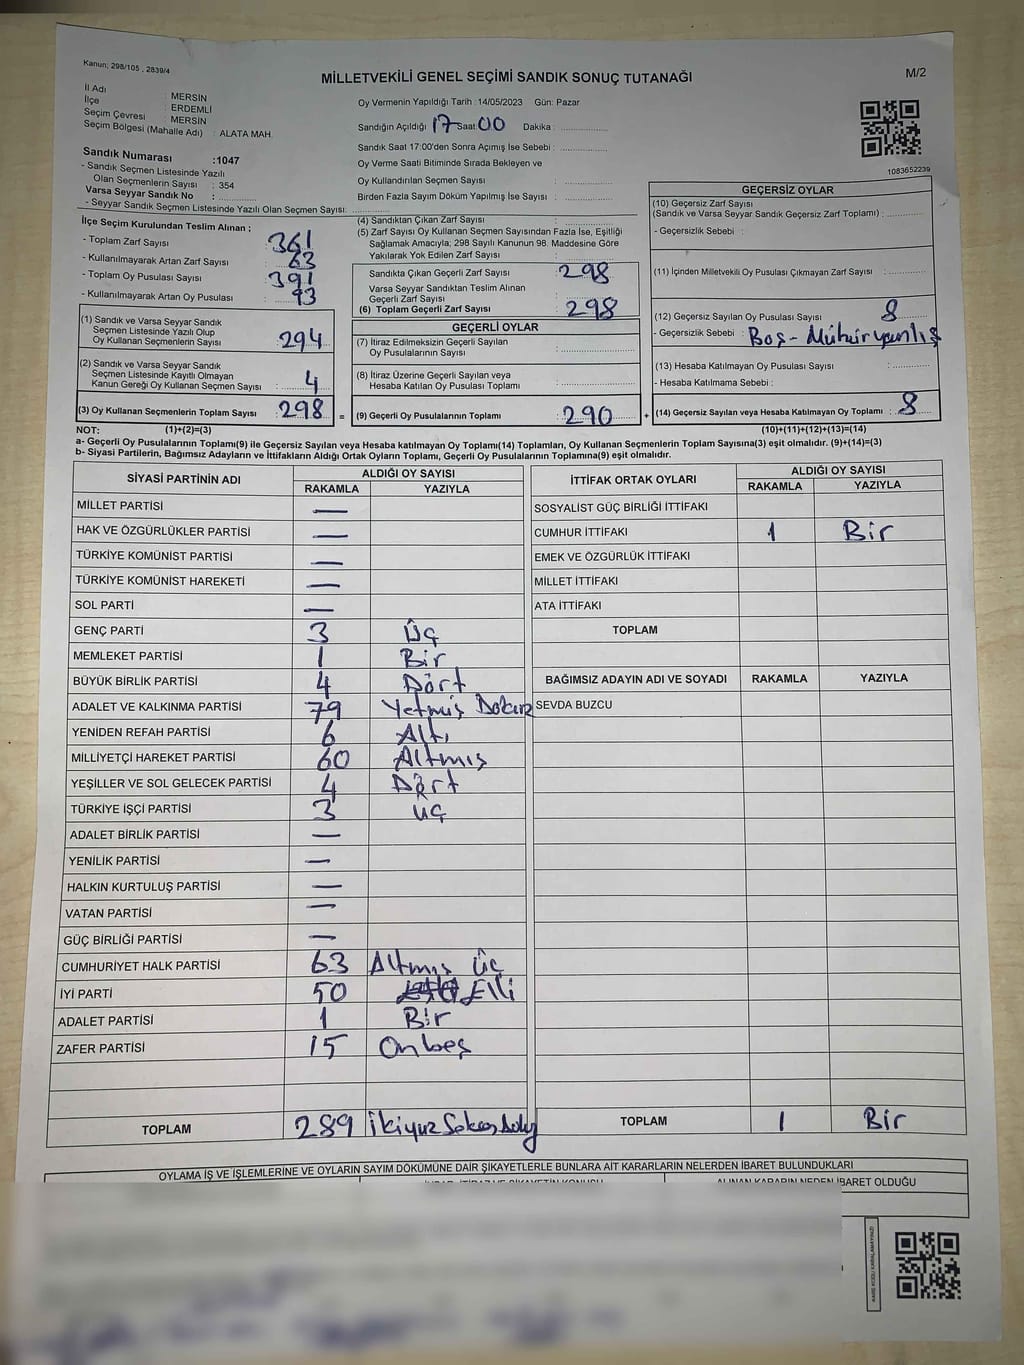 Kanun; 298/105 , 2839/4
MİLLETVEKİLİ GENEL SEÇİMİ SANDIK SONUÇ TUTANAĞI
M/2
İl Adı : MERSİN
İlçe : ERDEMLİ
Seçim Çevresi : MERSİN
Seçim Bölgesi (Mahalle Adı) : ALATA MAH.
Sandık Numarası :1047
- Sandık Seçmen Listesinde Yazılı
Olan Seçmenlerin Sayısı : 354
Varsa Seyyar Sandık No :
- Seyyar Sandık Seçmen Listesinde Yazılı Olan Seçmen Sayısı:
Oy Vermenin Yapıldığı Tarih : 14/05/2023 Gün: Pazar
Sandığın Açıldığı 17 Saat 00 Dakika :
Sandık Saat 17:00'den Sonra Açımış İse Sebebi :
Oy Verme Saati Bitiminde Sırada Bekleyen ve
Oy Kullandırılan Seçmen Sayısı :
Birden Fazla Sayım Döküm Yapılmış İse Sayısı :
1083652239
İlçe Seçim Kurulundan Teslim Alınan ;
- Toplam Zarf Sayısı : 361
- Kullanılmayarak Artan Zarf Sayısı : 63
- Toplam Oy Pusulası Sayısı : 391
- Kullanılmayarak Artan Oy Pusulası : 93
(1) Sandık ve Varsa Seyyar Sandık
Seçmen Listesinde Yazılı Olup
Oy Kullanan Seçmenlerin Sayısı : 294
(2) Sandık ve Varsa Seyyar Sandık
Seçmen Listesinde Kayıtlı Olmayan
Kanun Gereği Oy Kullanan Seçmen Sayısı : 4
(3) Oy Kullanan Seçmenlerin Toplam Sayısı : 298 =
(4) Sandıktan Çıkan Zarf Sayısı :
(5) Zarf Sayısı Oy Kullanan Seçmen Sayısından Fazla İse, Eşitliği
Sağlamak Amacıyla; 298 Sayılı Kanunun 98. Maddesine Göre
Yakılarak Yok Edilen Zarf Sayısı :
Sandıkta Çıkan Geçerli Zarf Sayısı : 298
Varsa Seyyar Sandıktan Teslim Alınan
Geçerli Zarf Sayısı :
(6) Toplam Geçerli Zarf Sayısı : 298
GEÇERLİ OYLAR
(7) İtiraz Edilmeksizin Geçerli Sayılan
Oy Pusulalarının Sayısı :
(8) İtiraz Üzerine Geçerli Sayılan veya
Hesaba Katılan Oy Pusulası Toplamı :
(9) Geçerli Oy Pusulalarının Toplamı : 290 +
GEÇERSİZ OYLAR
(10) Geçersiz Zarf Sayısı
(Sandık ve Varsa Seyyar Sandık Geçersiz Zarf Toplamı) :
- Geçersizlik Sebebi :
(11) İçinden Milletvekili Oy Pusulası Çıkmayan Zarf Sayısı :
(12) Geçersiz Sayılan Oy Pusulası Sayısı : 8
- Geçersizlik Sebebi : Boş - Mühür yanlış
(13) Hesaba Katılmayan Oy Pusulası Sayısı :
- Hesaba Katılmama Sebebi :
(14) Geçersiz Sayılan veya Hesaba Katılmayan Oy Toplamı : 8
NOT: (1)+(2)=(3) (10)+(11)+(12)+(13)=(14)
a- Geçerli Oy Pusulalarının Toplamı(9) ile Geçersiz Sayılan veya Hesaba katılmayan Oy Toplamı(14) Toplamları, Oy Kullanan Seçmenlerin Toplam Sayısına(3) eşit olmalıdır. (9)+(14)=(3)
b- Siyasi Partilerin, Bağımsız Adayların ve İttifakların Aldığı Ortak Oyların Toplamı, Geçerli Oy Pusulalarının Toplamına(9) eşit olmalıdır.
SİYASİ PARTİNİN ADI ALDIĞI OY SAYISI
RAKAMLA YAZIYLA
MİLLET PARTİSI —
HAK VE ÖZGÜRLÜKLER PARTİSİ —
TÜRKİYE KOMÜNİST PARTİSİ —
TÜRKİYE KOMÜNİST HAREKETİ —
SOL PARTİ —
GENÇ PARTİ 3 Üç
MEMLEKET PARTİSİ 1 Bir
BÜYÜK BİRLİK PARTİSİ 4 Dört
ADALET VE KALKINMA PARTİSİ 79 Yetmiş Dokuz
YENİDEN REFAH PARTİSİ 6 Altı
MİLLİYETÇİ HAREKET PARTİSİ 60 Altmış
YEŞİLLER VE SOL GELECEK PARTİSİ 4 Dört
TÜRKİYE İŞÇİ PARTİSİ 3 Üç
ADALET BİRLİK PARTİSİ —
YENİLİK PARTİSİ —
HALKIN KURTULUŞ PARTİSİ —
VATAN PARTİSİ —
GÜÇ BİRLİĞİ PARTİSİ —
CUMHURİYET HALK PARTİSİ 63 Altmış Üç
İYİ PARTİ 50 Elli
ADALET PARTİSİ 1 Bir
ZAFER PARTİSİ 15 Onbeş
TOPLAM 289
İTTİFAK ORTAK OYLARI ALDIĞI OY SAYISI
RAKAMLA YAZIYLA
SOSYALİST GÜÇ BİRLİĞİ İTTİFAKI
CUMHUR İTTİFAKI 1 Bir
EMEK VE ÖZGÜRLÜK İTTİFAKI
MİLLET İTTİFAKI
ATA İTTİFAKI
TOPLAM
BAĞIMSIZ ADAYIN ADI VE SOYADI RAKAMLA YAZIYLA
SEVDA BUZCU
TOPLAM 1 Bir
OYLAMA İŞ VE İŞLEMLERİNE VE OYLARIN SAYIM DÖKÜMÜNE DAİR ŞİKAYETLERLE BUNLARA AİT KARARLARIN NELERDEN İBARET BULUNDUKLARI
ALINAN KARARIN NEDEN İBARET OLDUĞU